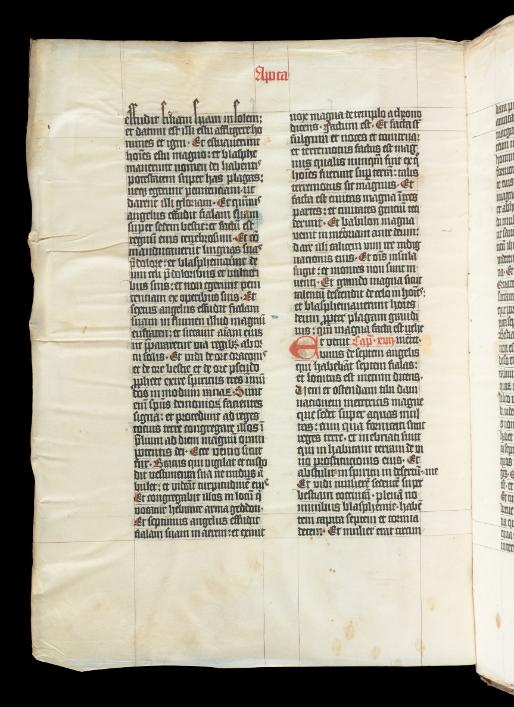 Apoca
effudit fialam suam in solem:
et datum est illi estu affligere ho
mines et igni. Et estuauerunt
hoies estu magno: et blasphe
mauerunt nomen dei habentis
potestatem super has plagas:
neqz egerunt penitentiam ut
darent illi gloriam. Et quintus
angelus effudit fialam suam
super sedem bestie: et factu est
regnu eius tenebrosum. Et co
manducauerunt linguas suas
p dolore: et blasphemauerunt de
um celi p doloribus et vulneri
bus suis: et non egerunt peni
tentiam ex operibus suis. Et
sextus angelus effudit fialam
suam in flumen illud magnu
eufraten: et siccauit aquam eius
ut ppararetur via regibz ab or
tu solis. Et vidi de ore draconis
et de ore bestie et de ore pseudo
pphete exire spiritus tres imu
dos in modum ranaz. Sunt
eni spus demonioz facientes
signa: et procedunt ad reges
tocius terre congregare illos i
prelium ad diem magnu omni
potentis dei. Ecce venio sicut
fur. Beatus qui vigilat et custo
dit vestimenta sua ne nudus a
bulet: et videat turpitudine eius
Et congregabit illos in locu q
vocatur hebraice armageddon.
Et septimus angelus effudit
fialam suam in aerem: et exiuit
vox magna de templo a throno
dicens. Factum est. Et facta st
fulgura et voces et tonitrua:
et terremotus factus est mag
nus qualis nunqua fuit ex q
hoies fuerunt sup terra: talis
terremotus sic magnus. Et
facta est ciuitas magna i tres
partes: et ciuitates gentiu ceci
derunt. Et babilon magna
venit in memoriam ante deum:
dare illi calicem vini ire indig
nacionis eius. Et ois insula
fugit: et montes non sunt in
uenti. Et grando magna sicut
talentu descendit de celo in hoies:
et blasphemauerunt hoies
deum ppter plagam grandi
nis: qm magna facta est vehe
Et venit Cap. xvii. menter.
vnus de septem angelis
qui habebat septem fialas:
et locutus est mecum dicens.
Veni et ostendam tibi dam
nationem meretricis magne
que sedet super aquas mul
tas: cum qua fornicati sunt
reges terre. et inebriati sunt
qui inhabitant terram de vi
no prostitucionis eius. Et
abstulit in spiritu in desertu. me
Et vidi muliere sedente super
bestiam coccinea. plena no
minibus blasphemie. habete
tem capita septem et cornua
decem. Et mulier erat circum